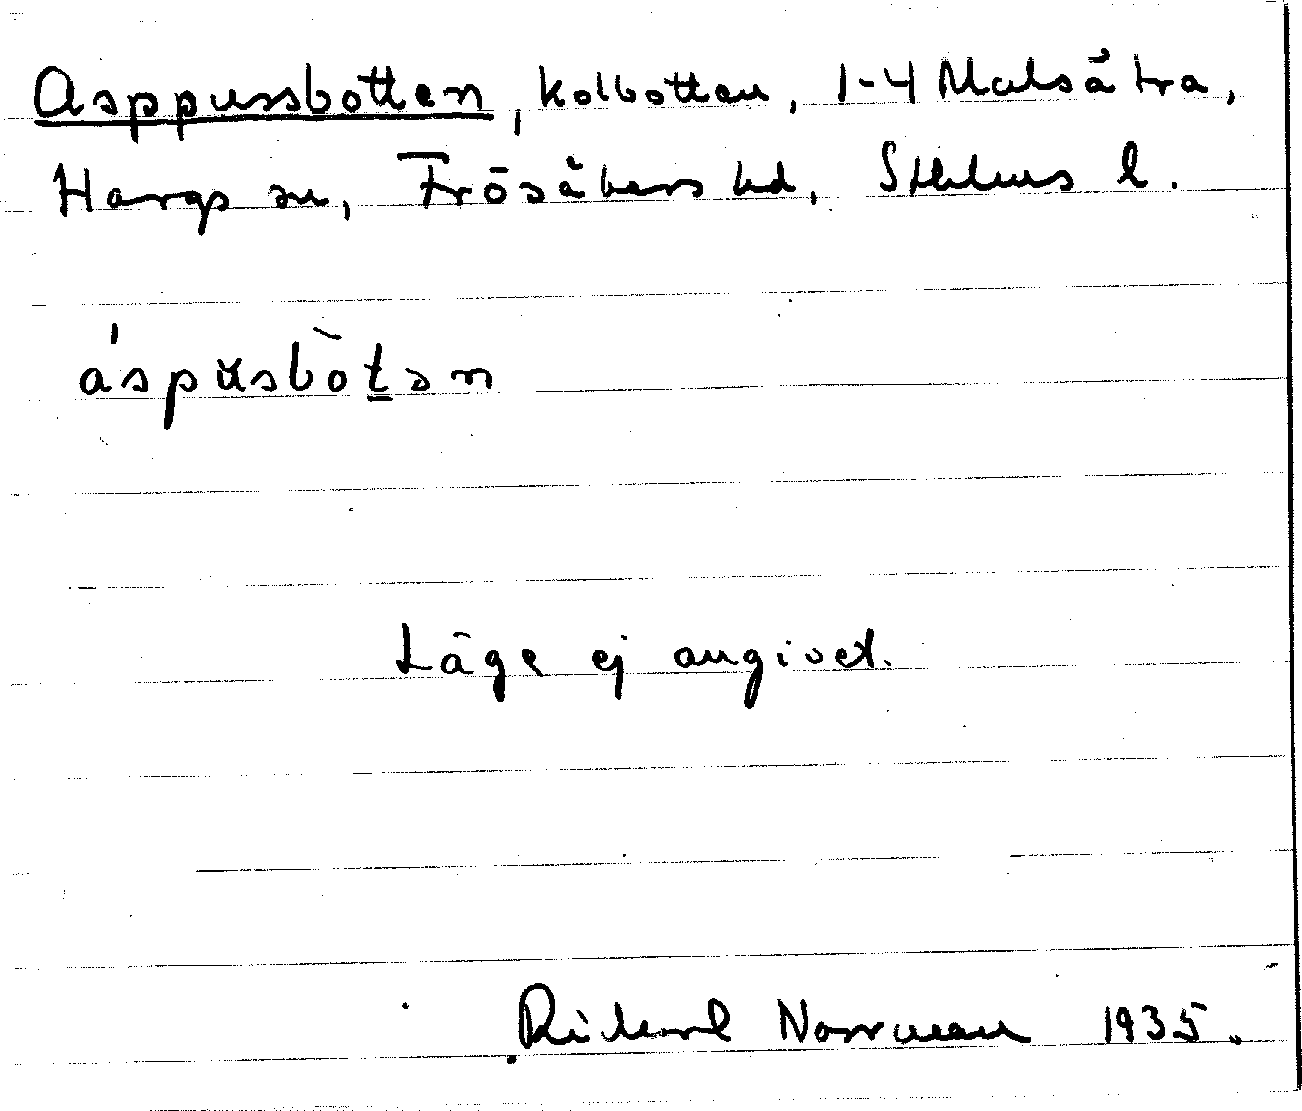 Asppussbotten, kolbotten, 1-4 Malsätra,
Hargs sn, Frösåkers hd, Sthlms l.
áspusbòtən
Läge ej angivet.
Rikard Norrman 1935.